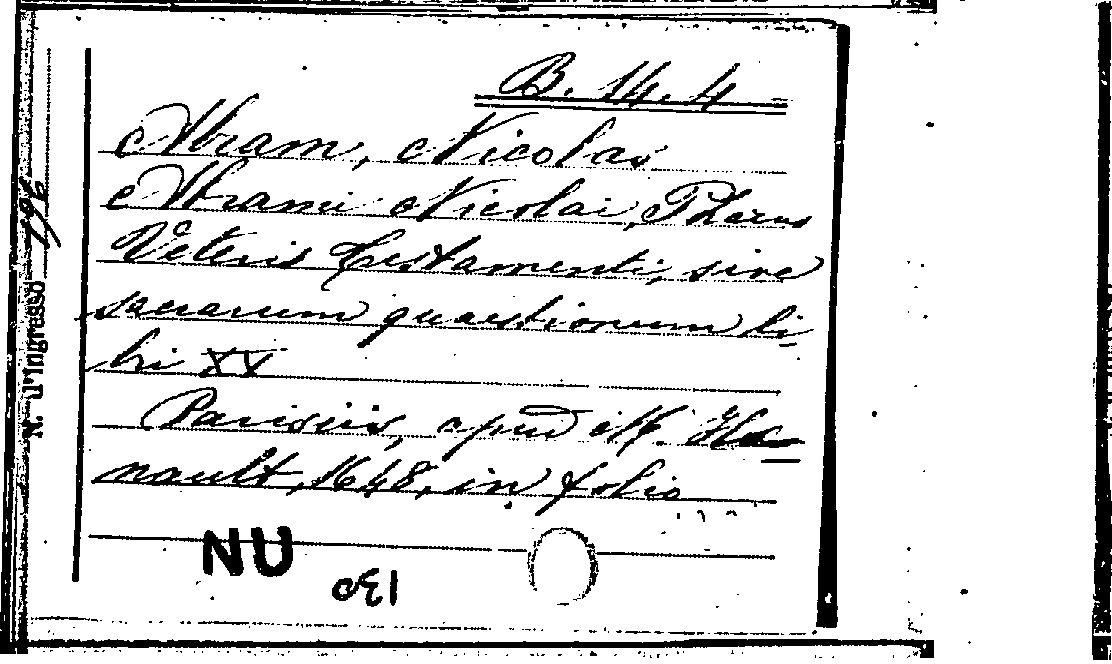 B. 14. 4
Abram, Nicolas
Abrami Nicolai, Pharus
Veteris Testamenti, sive
sacrarum quaestionum li-
bri XX
Parisiis, apud M. He-
nault, 1648, in folio
NU
N. d'Ingresso